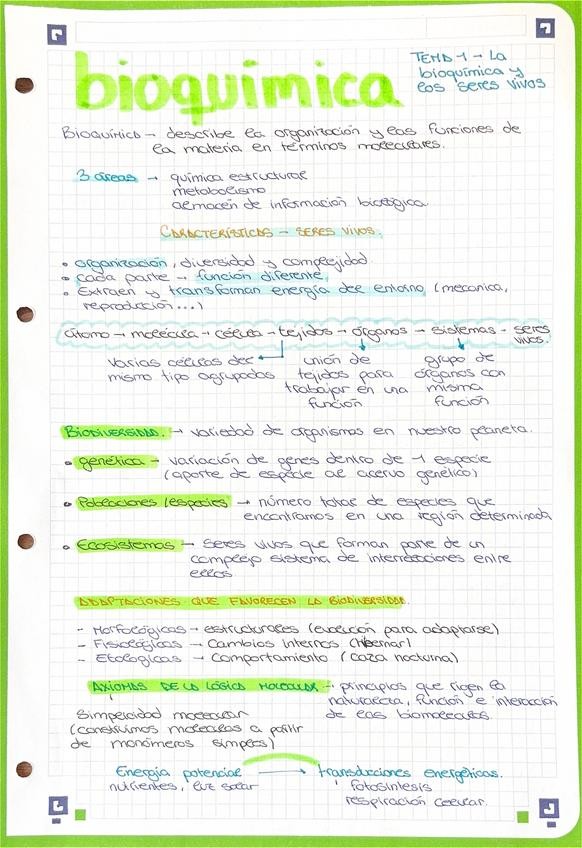 bioquímica
TEMA 1 → La
bioquímica y
los seres vivos
Bioquímica → describe la organización y las funciones de
la materia en términos moleculares.
3 áreas → química estructural
metabolismo
almacén de información biológica.
CARACTERÍSTICAS - SERES VIVOS.
• organización, diversidad y complejidad.
• cada parte → función diferente.
• Extraen y transforman energía del entorno (mecánica,
reproducción...)
átomo → molécula → célula → tejidos → órganos → sistemas → seres
vivos.
varias células del
mismo tipo agrupadas
unión de
tejidos para
trabajar en una
función
grupo de
órganos con
misma
función
BIODIVERSIDAD. → variedad de organismos en nuestro planeta.
• genética → variación de genes dentro de 1 especie
(aporte de especie al acervo genético)
• Poblaciones/especies → número total de especies que
encontramos en una región determinada
• Ecosistemas → seres vivos que forman parte de un
complejo sistema de interacciones entre
ellos
ADAPTACIONES QUE FAVORECEN LA BIODIVERSIDAD.
- Morfológicas → estructurales (evolución para adaptarse)
- Fisiológicas → Cambios internos (hibernar)
- Etológicas → Comportamiento (caza nocturna)
AXIOMAS DE LA LÓGICA MOLECULAR → principios que rigen la
naturaleza, función e interacción
de las biomoléculas.
Simplicidad molecular
(construimos moléculas a partir
de monómeros simples)
Energía potencial → transducciones energéticas.
nutrientes, luz solar
fotosíntesis
respiración celular.